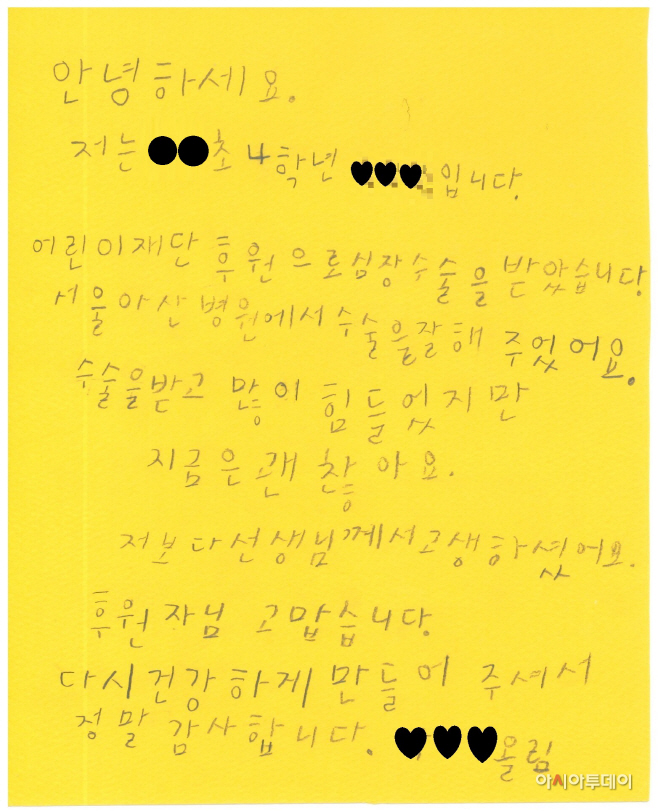 안녕하세요.
저는 ●●초 4학년 ♥♥♥입니다.
어린이재단 후원으로심장수술을 받았습니다
서울아산병원에서 수술을잘해 주었어요.
수술을받고 많이 힘들었지만
지금은괜찮아요.
저보다선생님께서고생하셨어요.
후원자님 고맙습니다.
다시건강하게 만들어 주셔서
정말 감사합니다. ♥♥♥올림
아시아투데이